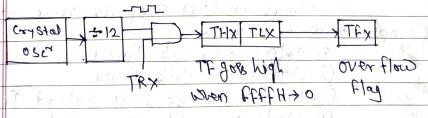 Crystal
oscr
÷12
TRX
THX TLX
TF goes high
when FFFFH→0
TFX
over flow
flag